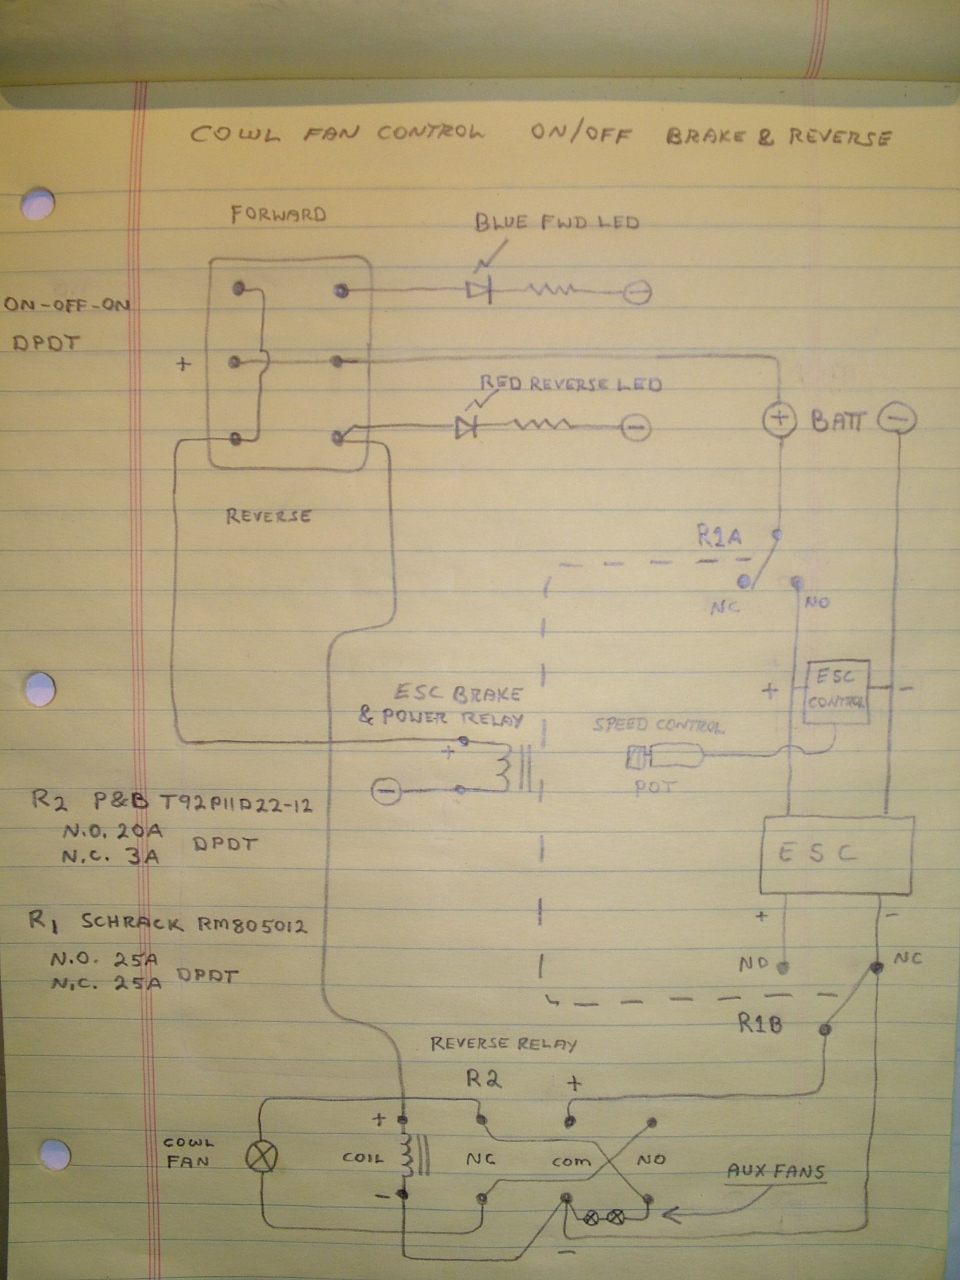 COWL FAN CONTROL ON/OFF BRAKE & REVERSE
FORWARD
BLUE FWD LED
ON-OFF-ON
DPDT
+
RED REVERSE LED
+ BATT -
REVERSE
R2A
NC
NO
ESC BRAKE
& POWER RELAY
+
-
SPEED CONTROL
POT
+ ESC -
CONTROL
R2 P&B T92P11D22-12
N.O. 20A
N.C. 3A DPDT
ESC
+ -
R1 SCHRACK RM805012
N.O. 25A
N.C. 25A DPDT
NO
NC
R1B
REVERSE RELAY
R2 +
+
COWL
FAN
COIL NC COM NO
AUX FANS
-
-